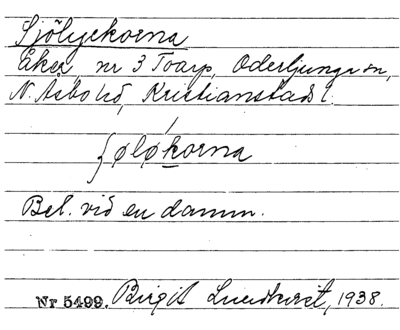 Sjölyckorna
Åker, nr 3 Toarp, Oderljunga sn,
N. Åsbo hd, Kristianstads l.
ʃøløkorna
Bel. vid en damm.
Nr 5499. Birgit Lundkvist, 1938.